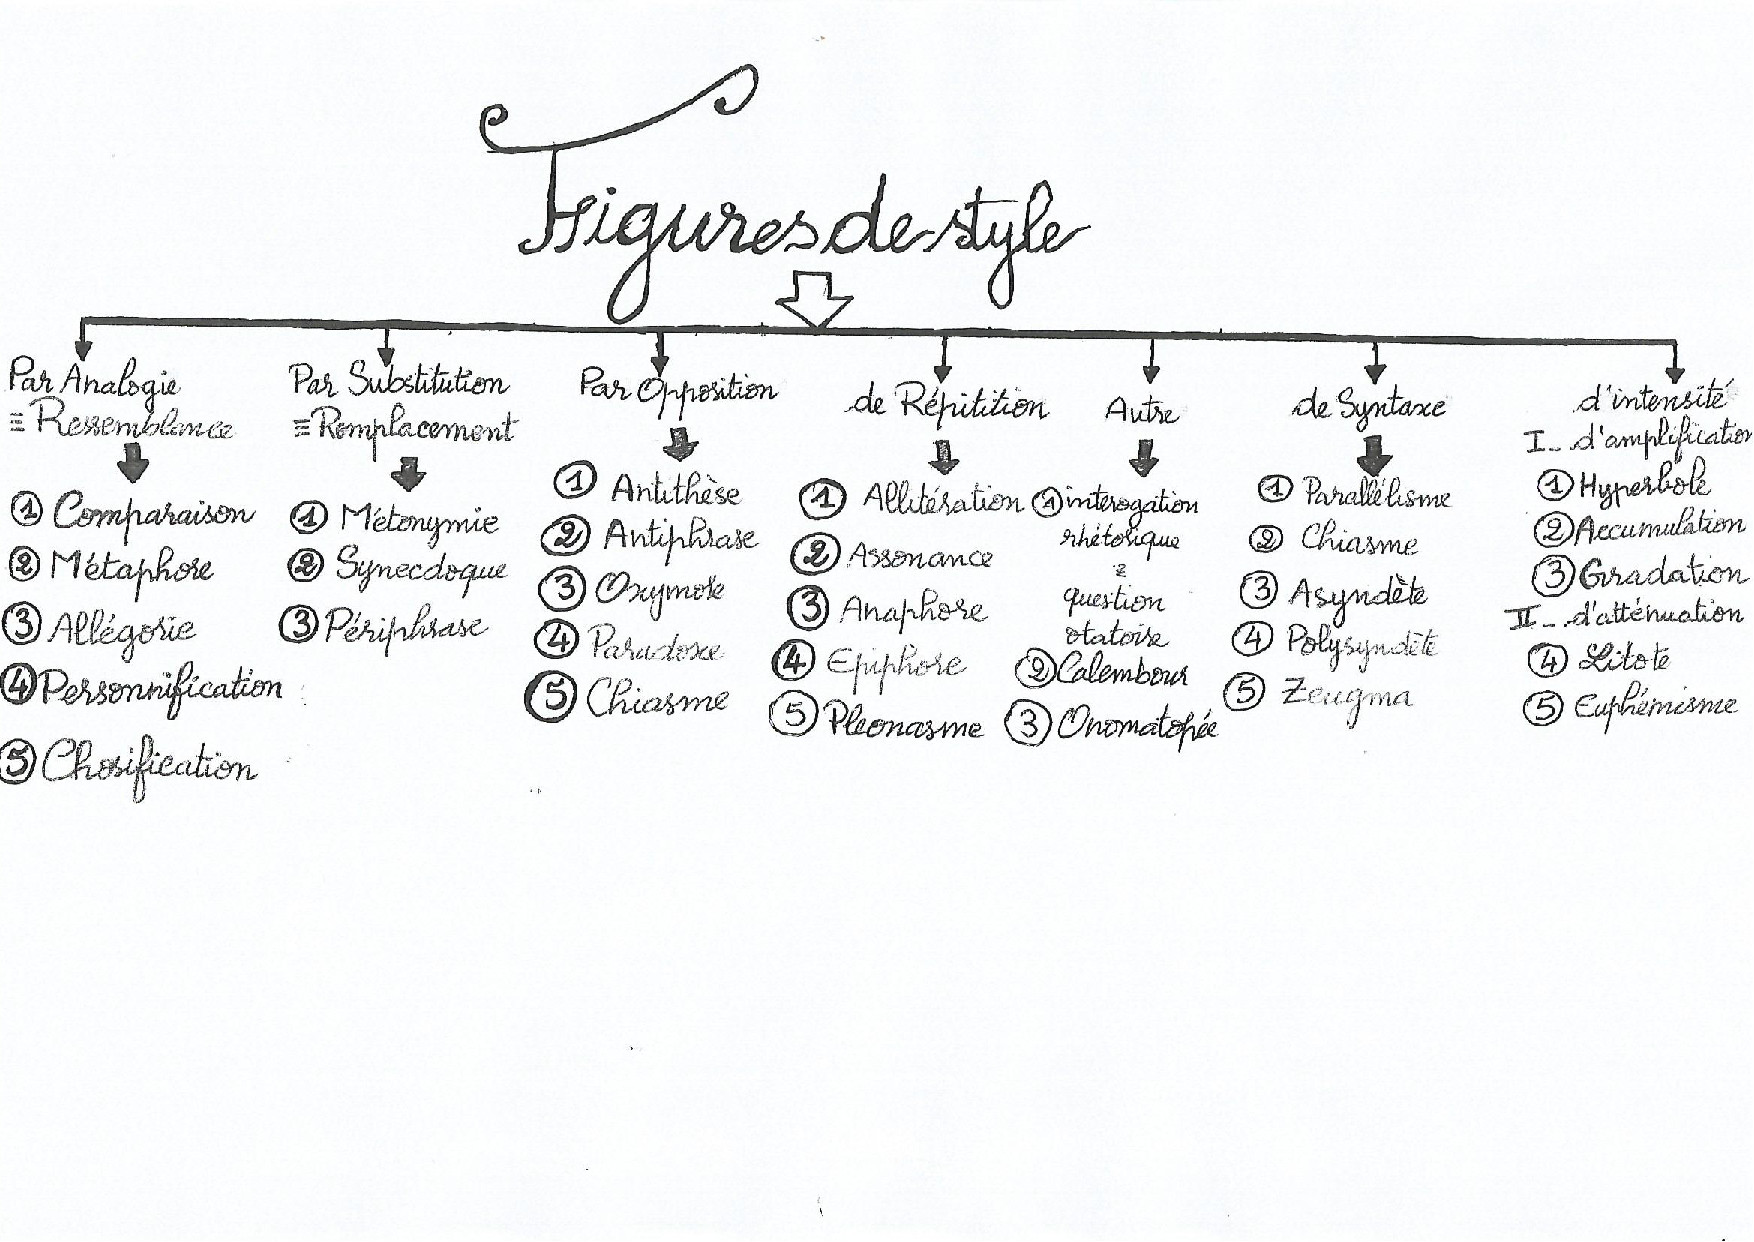 Figures de style
Par Analogie
≡ Ressemblance
① Comparaison
② Métaphore
③ Allégorie
④ Personnification
⑤ Chosification
Par Substitution
≡ Remplacement
① Métonymie
② Synecdoque
③ Périphrase
Par Opposition
① Antithèse
② Antiphrase
③ Oxymore
④ Paradoxe
⑤ Chiasme
de Répitition
① Allitération
② Assonance
③ Anaphore
④ Epiphore
⑤ Pleonasme
Autre
① interogation
rhétorique
=
question
otatoire
② Calembour
③ Onomatopée
de Syntaxe
① Parallélisme
② Chiasme
③ Asyndète
④ Polysyndète
⑤ Zeugma
d'intensité
I_ d'amplification
① Hyperbole
② Accumulation
③ Gradation
II_ d'atténuation
④ Litote
⑤ Euphémisme